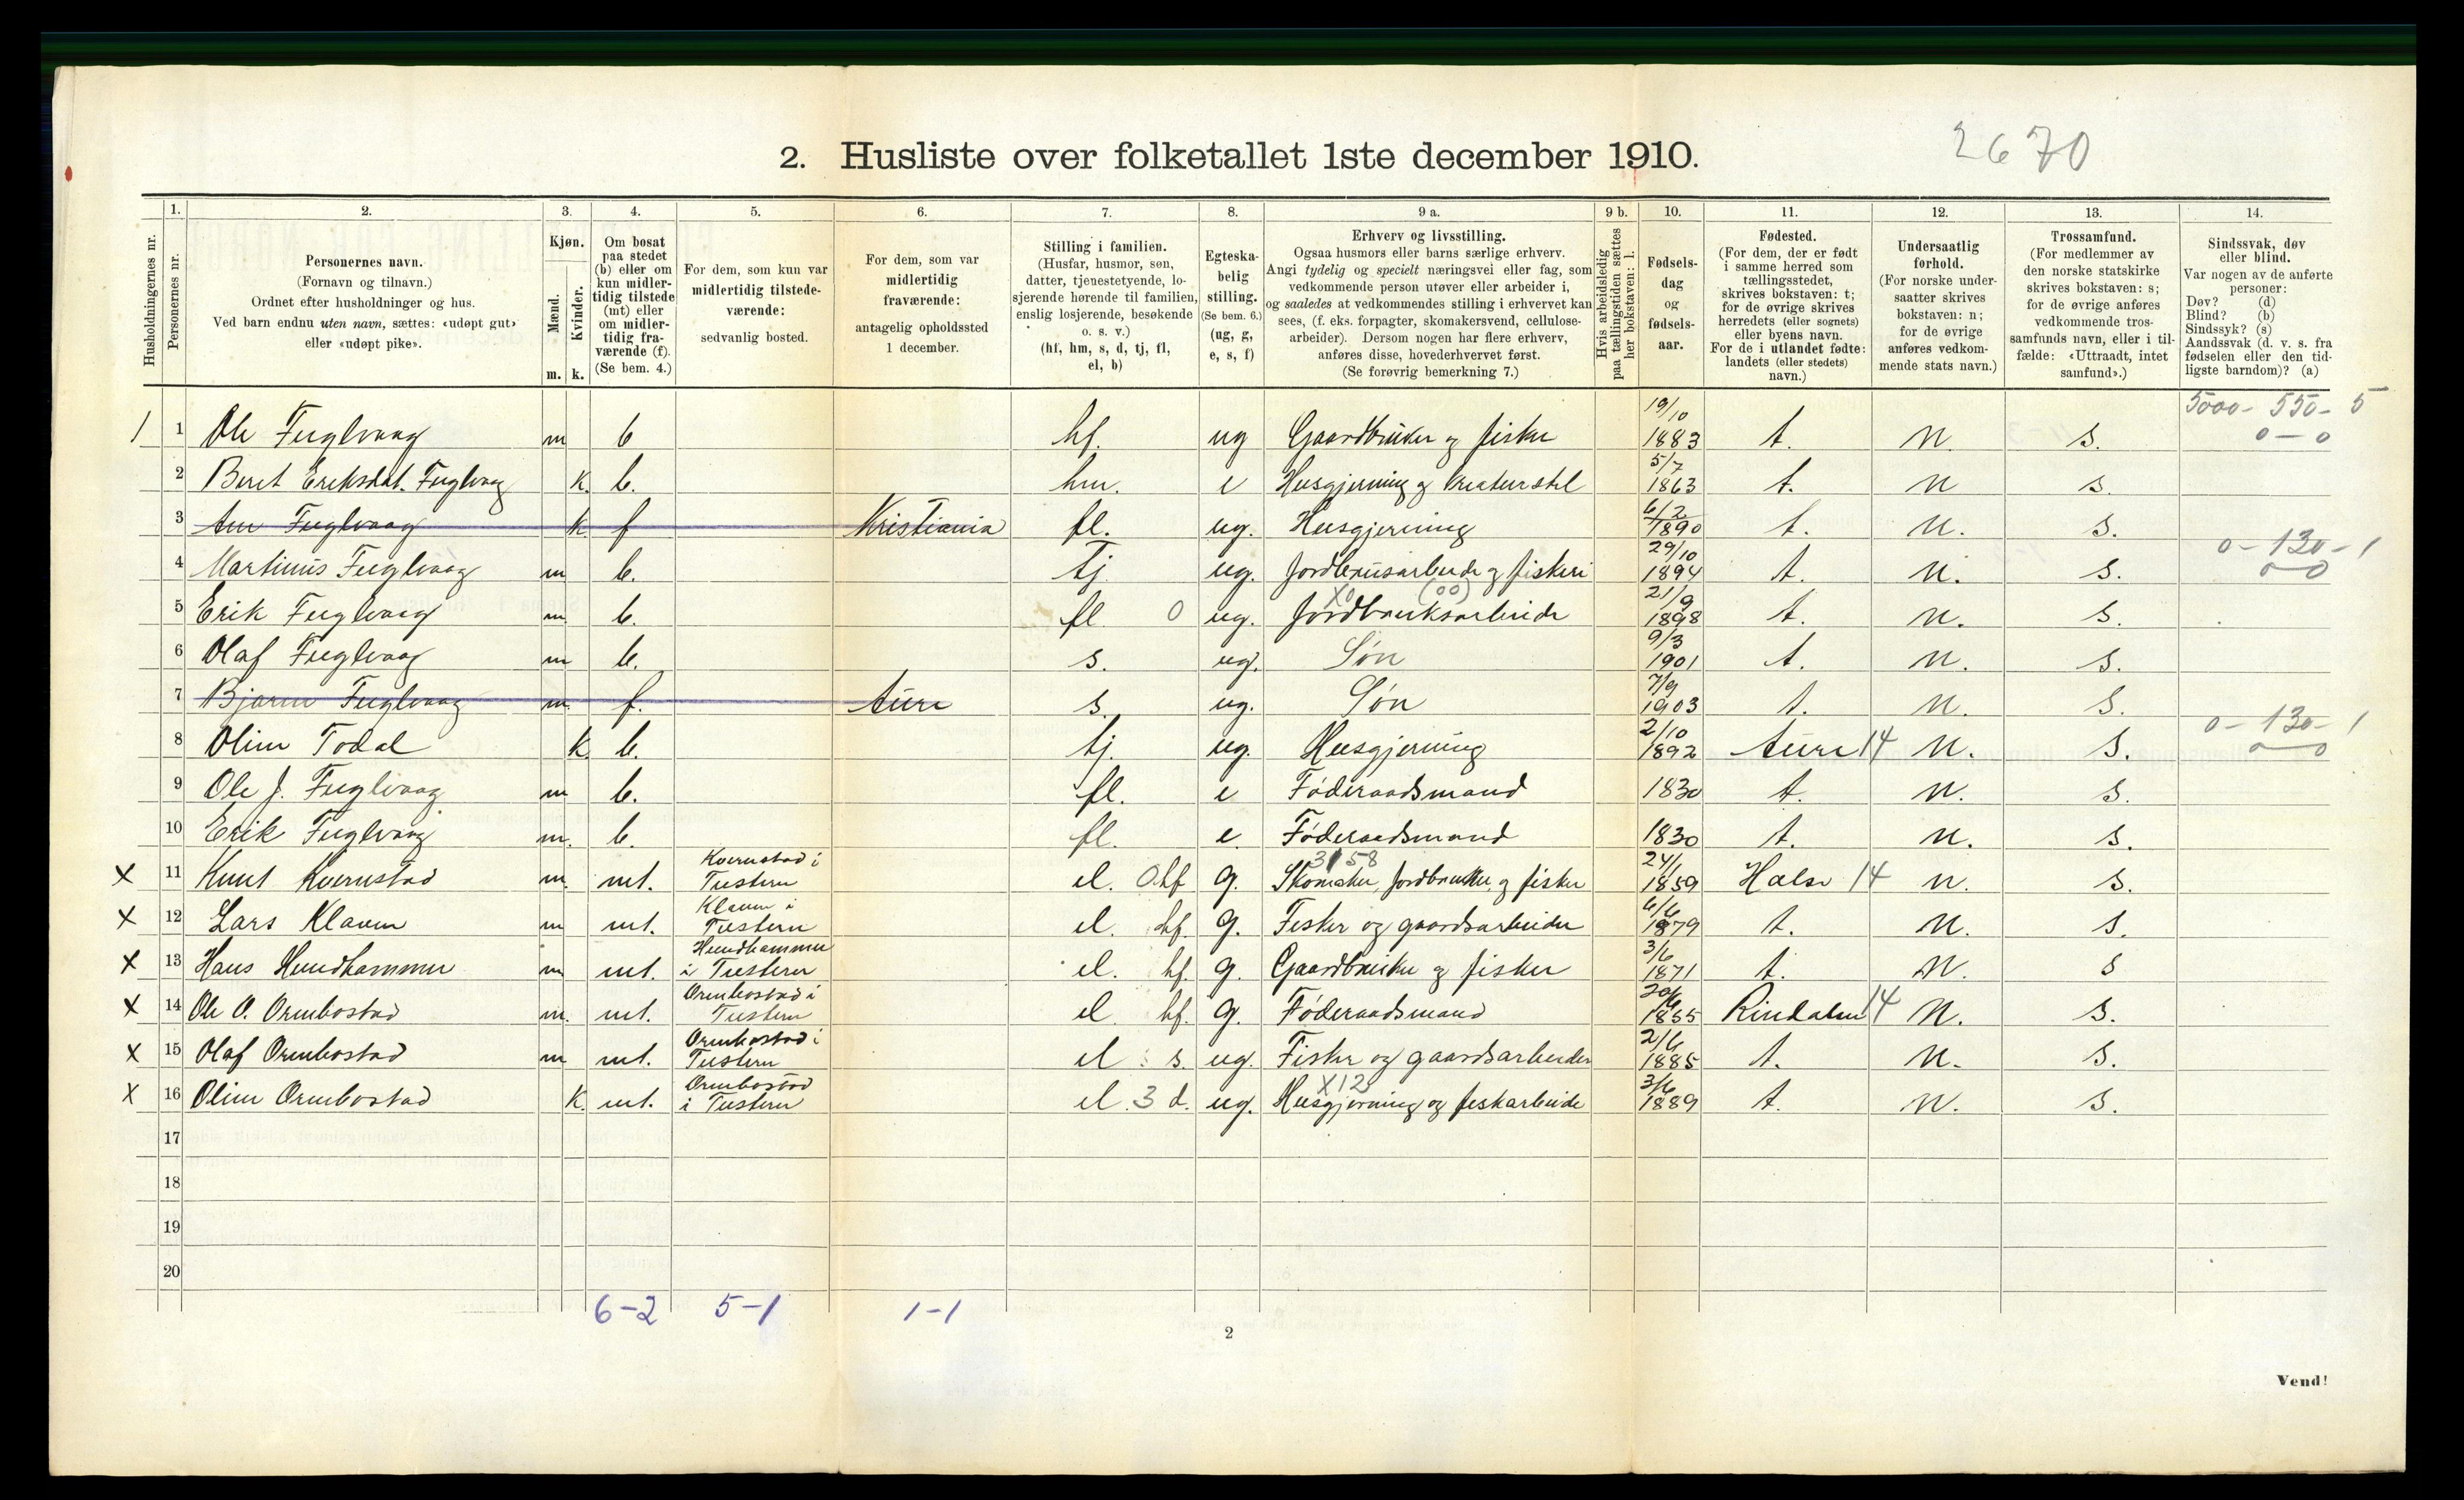 2670
2. Husliste over folketallet 1ste december 1910.
Husholdningernes nr.
1. Personernes nr.
2. Personernes navn. (Fornavn og tilnavn.) Ordnet efter husholdninger og hus. Ved barn endnu uten navn, sættes: «udøpt gut» eller «udøpt pike».
3. Kjøn. Mænd. m. Kvinder. k.
4. Om bosat paa stedet (b) eller om kun midlertidig tilstede (mt) eller om midlertidig fraværende (f). (Se bem. 4.)
5. For dem, som kun var midlertidig tilstedeværende: sedvanlig bosted.
6. For dem, som var midlertidig fraværende: antagelig opholdssted 1 december.
7. Stilling i familien. (Husfar, husmor, søn, datter, tjenestetyende, losjerende hørende til familien, enslig losjerende, besøkende o. s. v.) (hf, hm, s, d, tj, fl, el, b)
8. Egteskabelig stilling. (Se bem. 6.) (ug, g, e, s, f)
9 a. Erhverv og livsstilling. Ogsaa husmors eller barns særlige erhverv. Angi tydelig og specielt næringsvei eller fag, som vedkommende person utøver eller arbeider i, og saaledes at vedkommendes stilling i erhvervet kan sees, (f. eks. forpagter, skomakersvend, cellulosearbeider). Dersom nogen har flere erhverv, anføres disse, hovederhvervet først. (Se forøvrig bemerkning 7.)
9 b. Hvis arbeidsledig paa tællingstiden sættes her bokstaven: l.
10. Fødselsdag og fødselsaar.
11. Fødested. (For dem, der er født i samme herred som tællingsstedet, skrives bokstaven: t; for de øvrige skrives herredets (eller sognets) eller byens navn. For de i utlandet fødte: landets (eller stedets) navn.)
12. Undersaatlig forhold. (For norske undersaatter skrives bokstaven: n; for de øvrige anføres vedkommende stats navn.)
13. Trossamfund. (For medlemmer av den norske statskirke skrives bokstaven: s; for de øvrige anføres vedkommende trossamfunds navn, eller i tilfælde: «Uttraadt, intet samfund».)
14. Sindssvak, døv eller blind. Var nogen av de anførte personer: Døv? (d) Blind? (b) Sindssyk? (s) Aandssvak (d. v. s. fra fødselen eller den tidligste barndom)? (a)
1 1 Ole Fuglvaag m b hf. ug Gaardbruker og fisker 19/10 1883 t. n. s. 5000-550-5 0-0
2 Beret Eriksdat. Fuglvag k. b. hm. e Husgjerning og kreaturstel 5/7 1863 t. n s.
3 Ane Fuglvaag k f Kristiania fl. ug. Husgjerning 6/2 1890 t. n. s.
4 Martinus Fuglvaag m b. tj. ug. Jordbrusarbeide og fiskeri 29/10 1894 t. n. s. 0-130-1 0-0
5 Erik Fuglvaag m. b. fl. 0 ug. Jordbruksarbeide X0 (00) 21/9 1898 t. n. s.
6 Olaf Fuglvaag m b. s. ug. Søn 9/3 1901 t. n. s.
7 Bjarne Fuglvaag m. f. Aure s. ug. Søn 7/9 1903 t. n. s.
8 Oline Todal k b. tj. ug. Husgjerning 2/10 1892 Aure 14 n. s. 0-130-1 0-0
9 Ole J. Fuglvaag m b. fl. e Føderaadsmand 1830 t. n. s.
10 Erik Fuglvaag m. b. fl. e. Føderaadsmand 1830 t. n. s.
X 11 Knut Kvernstad m. mt. Kvernstad i Tustern el. 0 hf g. Skomaker, jordbruker og fisker 3158 24/1 1859 Halse 14 n. s.
X 12 Lars Klaven m mt. Klaven i Tustern el. hf. g. Fisker og gaardsarbeider 6/6 1879 t. n. s.
X 13 Hans Hundhammer m mt. Hundhammer i Tustern el. hf. g. Gaardbruker og fisker 3/6 1871 t. n. s
X 14 Ole O. Ormbostad m. mt. Ormbostad i Tustern el. hf. g. Føderaadsmand 1855 Rindalen 14 n. s.
X 15 Olaf Ormbostad m mt. Ormbostad i Tustern el. s. ug. Fisker og gaardsarbeider 2/6 1885 t. n. s.
X 16 Oline Ormbostad k. mt. Ormbostad i Tustern el. 3 d. ug. Husgjerning og fiskarbeide X12 3/6 1889 t. n. s.
17
18
19
20
6-2 5-1 1-1
2
Vend!